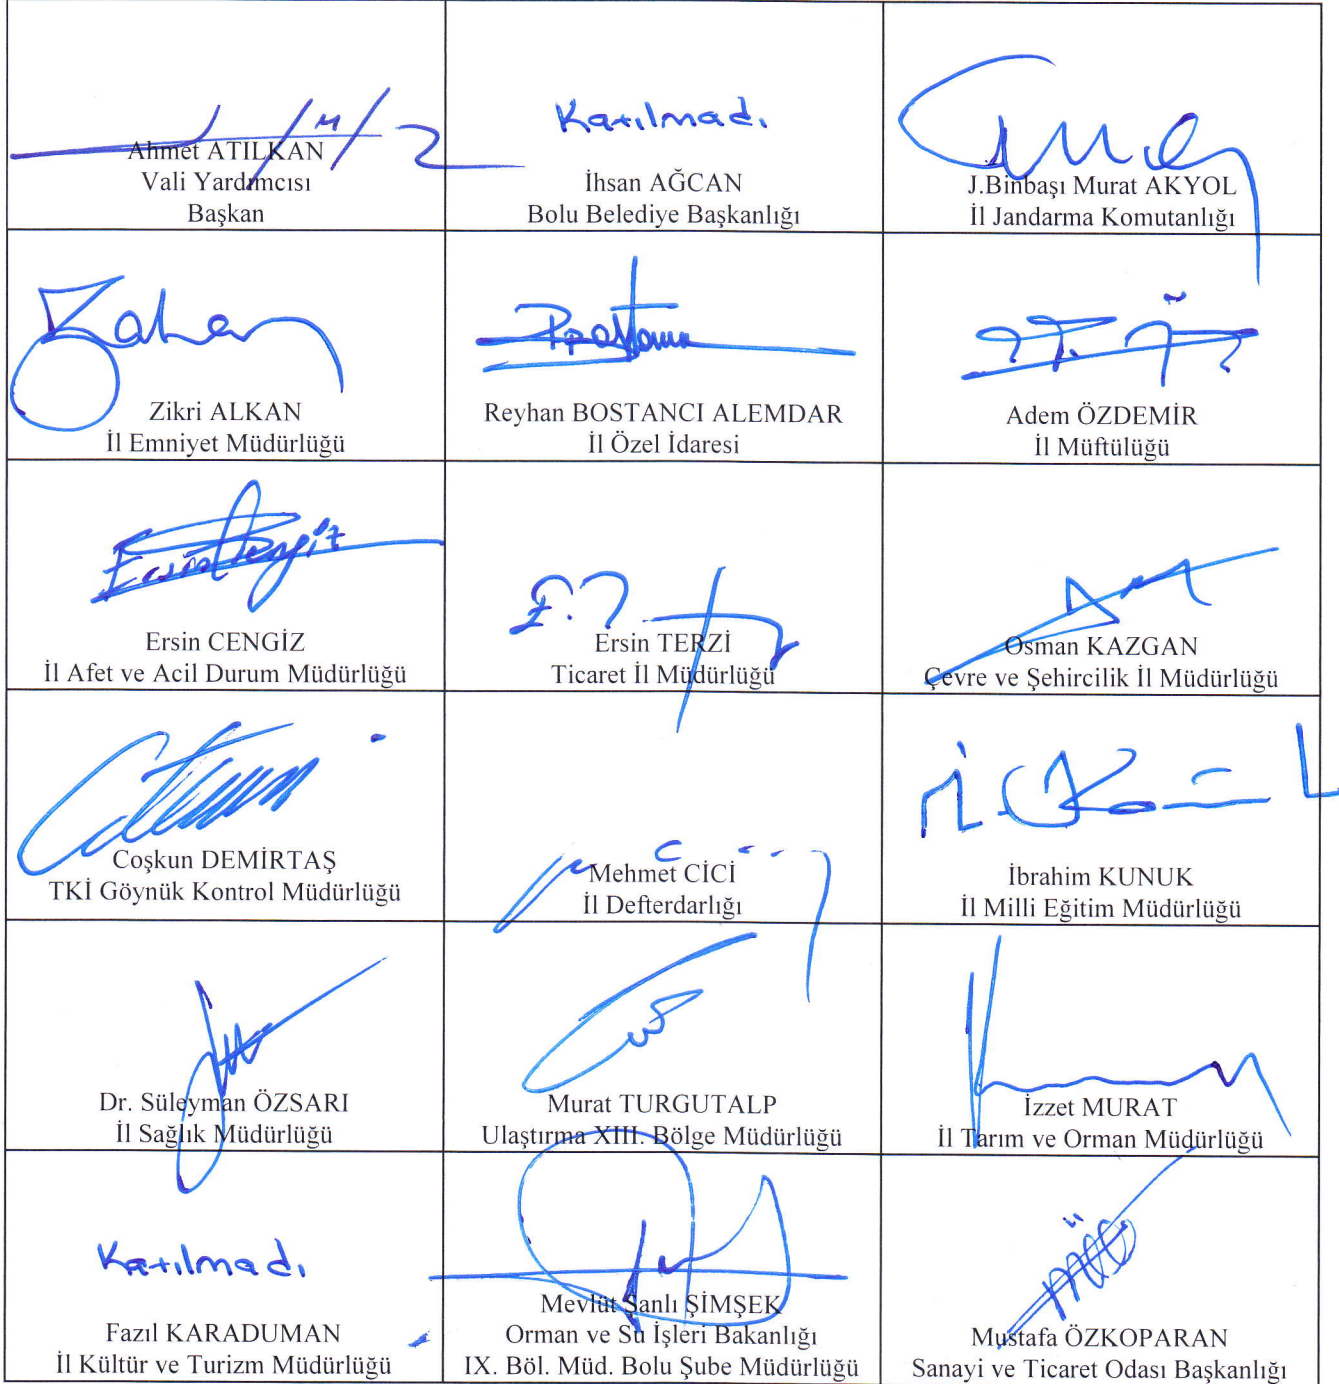 Ahmet ATILKAN
Vali Yardımcısı
Başkan
Katılmadı
İhsan AĞCAN
Bolu Belediye Başkanlığı
J.Binbaşı Murat AKYOL
İl Jandarma Komutanlığı
Zikri ALKAN
İl Emniyet Müdürlüğü
Reyhan BOSTANCI ALEMDAR
İl Özel İdaresi
Adem ÖZDEMİR
İl Müftülüğü
Ersin CENGİZ
İl Afet ve Acil Durum Müdürlüğü
Ersin TERZİ
Ticaret İl Müdürlüğü
Osman KAZGAN
Çevre ve Şehircilik İl Müdürlüğü
Coşkun DEMİRTAŞ
TKİ Göynük Kontrol Müdürlüğü
Mehmet CİCİ
İl Defterdarlığı
İbrahim KUNUK
İl Milli Eğitim Müdürlüğü
Dr. Süleyman ÖZSARI
İl Sağlık Müdürlüğü
Murat TURGUTALP
Ulaştırma XIII. Bölge Müdürlüğü
İzzet MURAT
İl Tarım ve Orman Müdürlüğü
Katılmadı
Fazıl KARADUMAN
İl Kültür ve Turizm Müdürlüğü
Mevlüt Şanlı ŞİMŞEK
Orman ve Su İşleri Bakanlığı
IX. Böl. Müd. Bolu Şube Müdürlüğü
Mustafa ÖZKOPARAN
Sanayi ve Ticaret Odası Başkanlığı